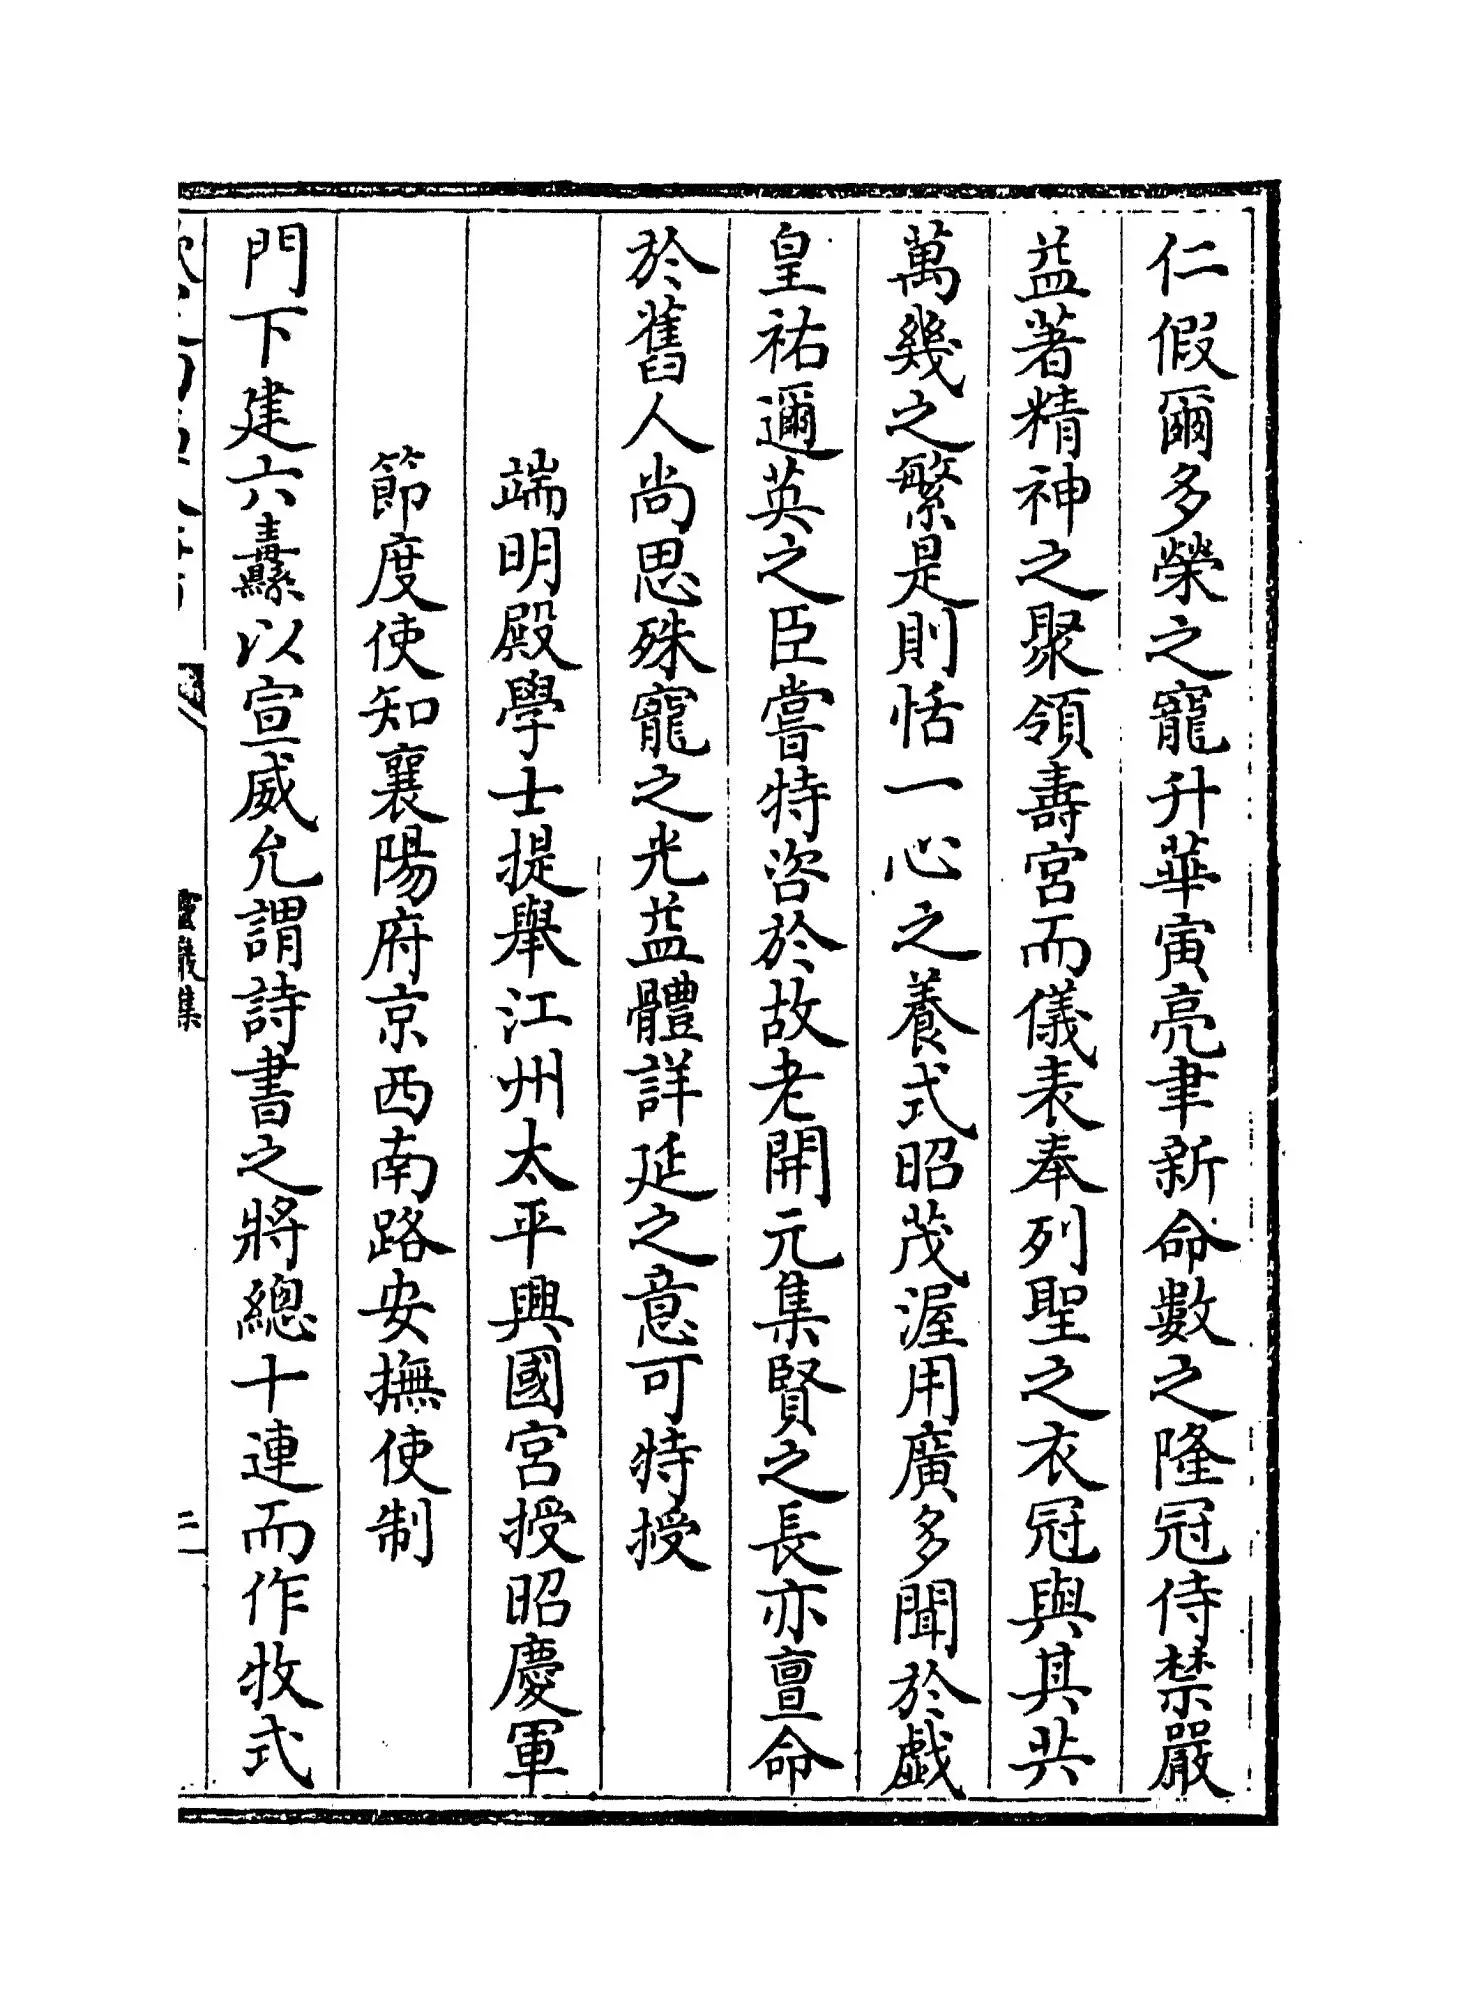 仁假爾多榮之寵升華寅亮聿新命數之隆冠侍禁嚴
益著精神之聚領壽宮而儀表奉列聖之衣冠與其共
萬幾之繁是則恬一心之養式昭茂渥用廣多聞於戲
皇祐邇英之臣嘗特咨於故老開元集賢之長亦亶命
於舊人尚思殊寵之光益體詳延之意可特授
端明殿學士提舉江州太平興國宮授昭慶軍
節度使知襄陽府京西南路安撫使制
門下建六纛以宣威允謂詩書之將總十連而作牧式
靈巖集
二